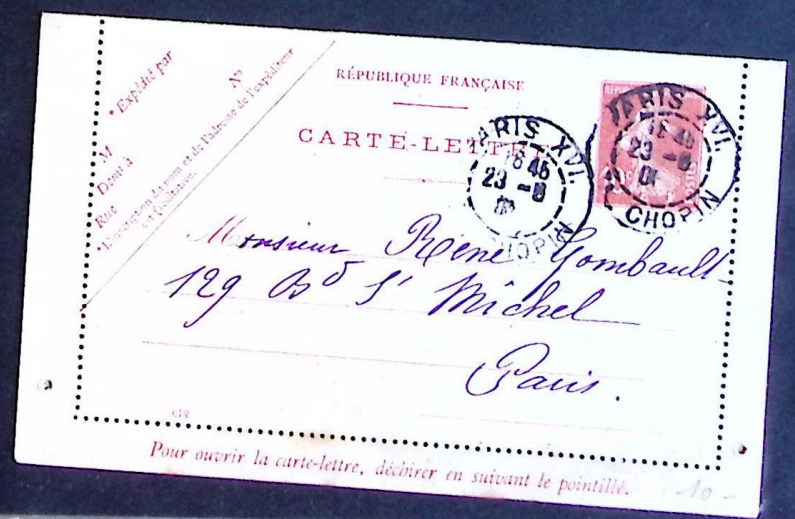 * Expédié par
N°
M
Demt à
Rue
* L'inscription du nom et de l'adresse de l'expéditeur
est facultative.
RÉPUBLIQUE FRANÇAISE
CARTE-LETTRE
PARIS XVI.
16 45
23
CHOPIN
PARIS XVI.
16 45
23
CHOPIN
Monsieur René Gombault
129 Bd St Michel
Paris.
Pour ouvrir la carte-lettre, déchirer en suivant le pointillé.
10 -